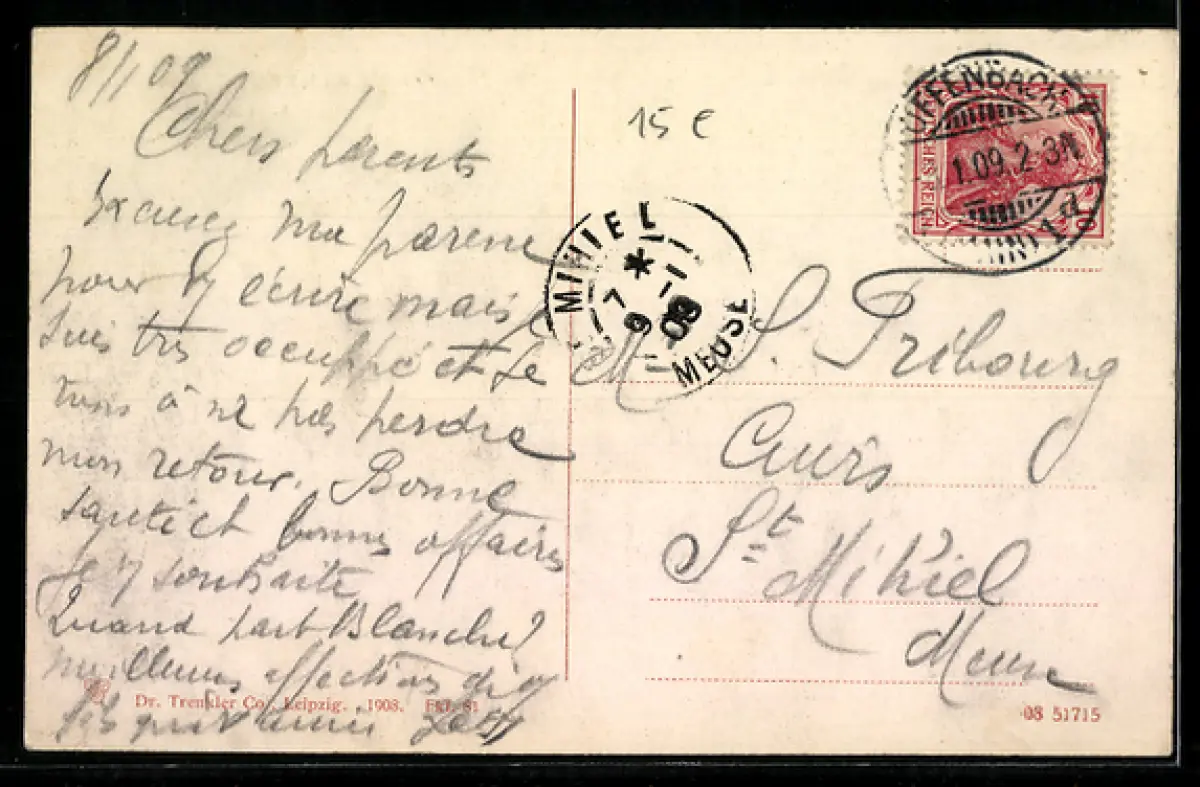 8/1 09
Chers parents
Excusez ma paresse
pour y écrire mais
suis très occuppé et Je
tiens à ne pas perdre
mon retour. Bonne
santé et bonnes affaires
Je y souhaite
Quand part Blanche?
meilleures affections
15 €
OFFENBACH
1.09. 2-3N.
DEUTSCHES REICH
10
MIHIEL
7 *
9 -1
09
MEUSE
M= S. Fribourg
Cuirs
St Mihiel
Meuse
Dr. Trenkler Co., Leipzig. 1908. Fkf. 81
08 51715